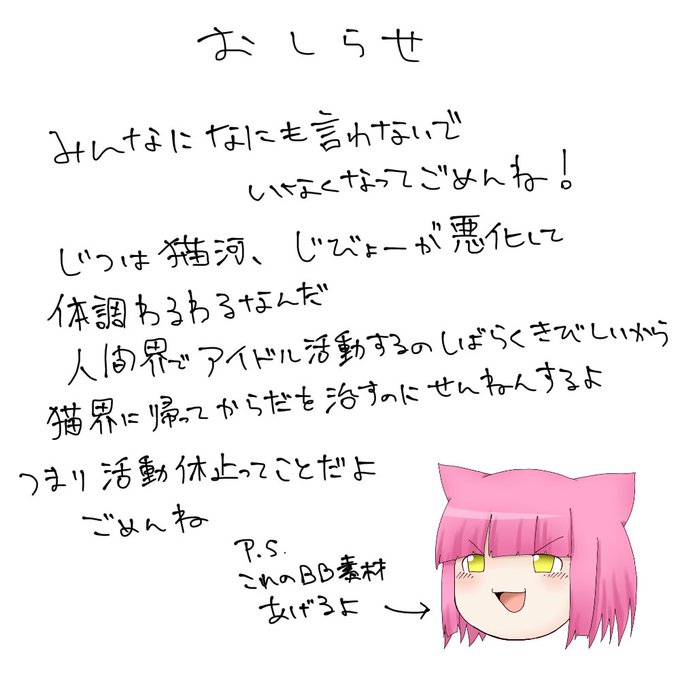 おしらせ
みんなになにも言わないで
いなくなってごめんね！
じつは猫河、じびょーが悪化して
体調わるわるなんだ
人間界でアイドル活動するのしばらくきびしいから
猫界に帰ってからだを治すのにせんねんするよ
つまり活動休止ってことだよ
ごめんね
P.S.
これのBB素材
あげるよ→